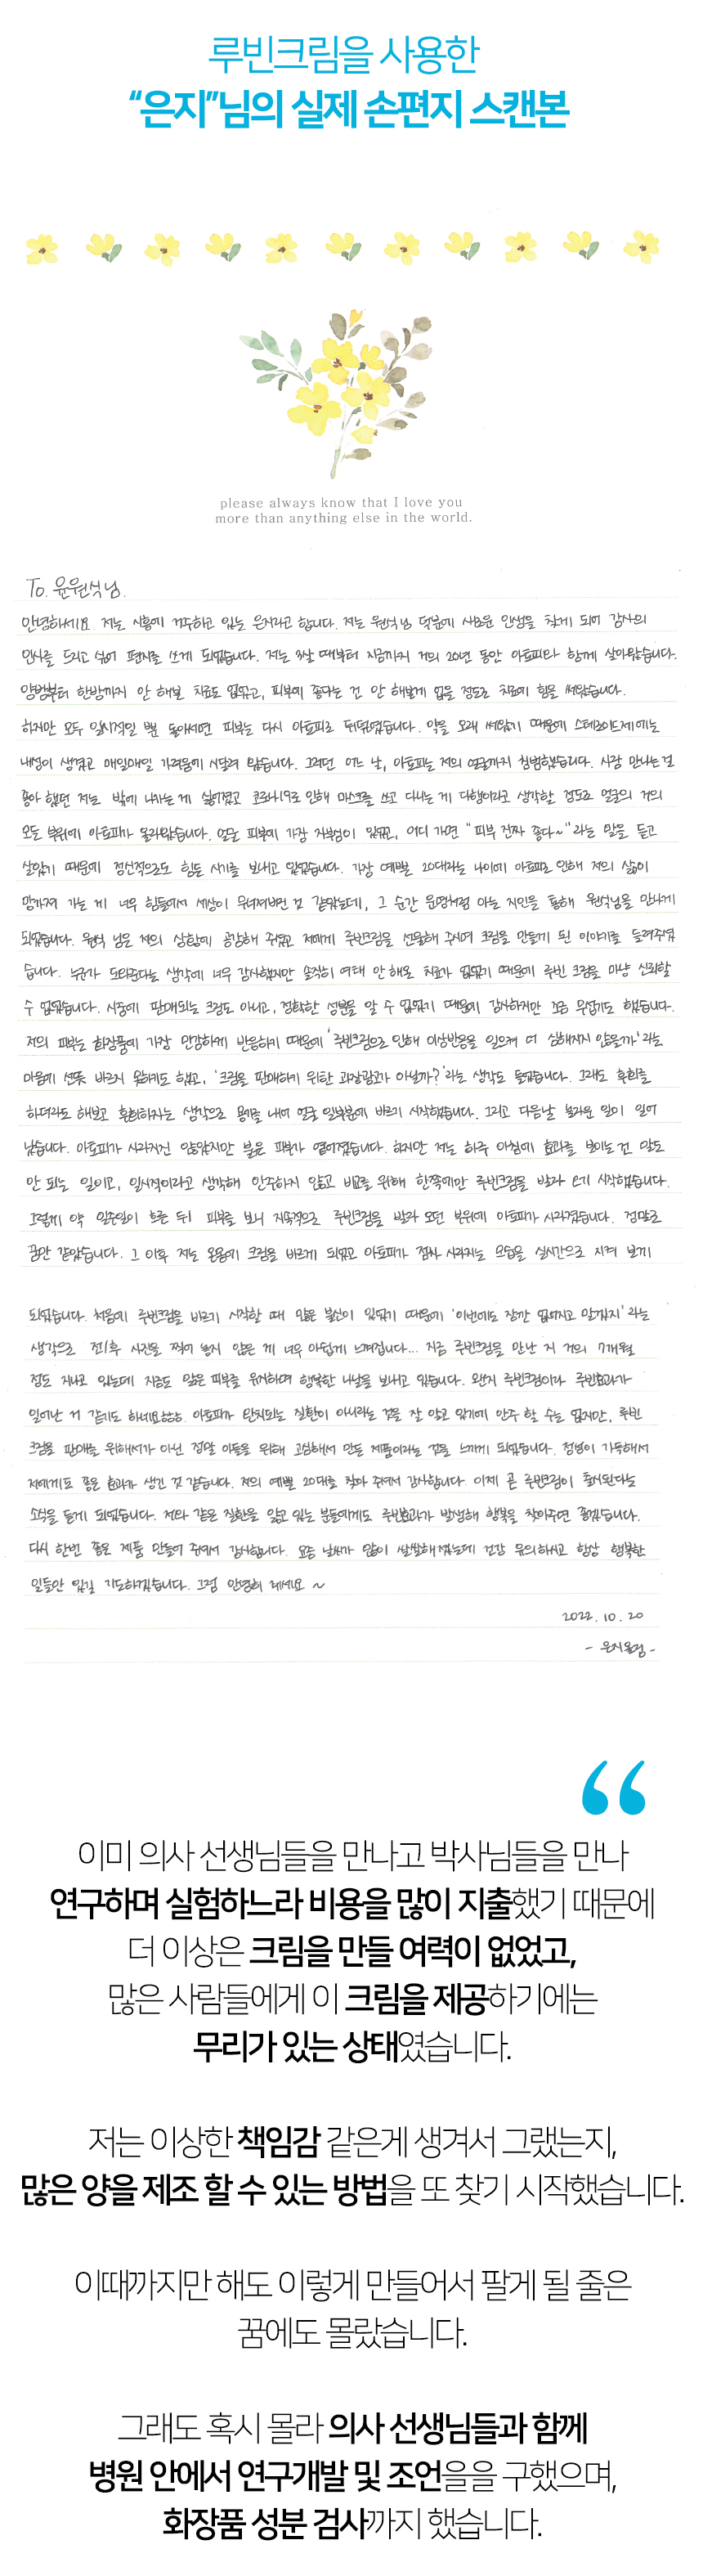 루빈크림을 사용한
“은지”님의 실제 손편지 스캔본
please always know that I love you
more than anything else in the world.
To. 윤원석님.
안녕하세요. 저는 시흥에 거주하고 있는 은지라고 합니다. 저는 원석님 덕분에 새로운 인생을 찾게 되어 감사의
인사를 드리고 싶어 편지를 쓰게 되었습니다. 저는 3살 때부터 지금까지 거의 20년 동안 아토피와 함께 살아왔습니다.
양방부터 한방까지 안 해본 치료도 없었고, 피부에 좋다는 건 안 해본게 없을 정도로 치료에 힘을 써왔습니다.
하지만 모두 일시적일 뿐 돌아서면 피부는 다시 아토피로 뒤덮였습니다. 약을 오래 써왔기 때문에 스테로이드제에는
내성이 생겼고 매일매일 가려움에 시달려 왔습니다. 그러던 어느 날, 아토피는 저의 얼굴까지 침범했습니다. 사람 만나는 걸
좋아 했던 저는 밖에 나가는 게 싫어졌고 코로나19로 인해 마스크를 쓰고 다니는 게 다행이라고 생각할 정도로 얼굴의 거의
모든 부위에 아토피가 올라왔습니다. 얼굴 피부에 가장 자부심이 있었고, 어디 가면 “피부 진짜 좋다~”라는 말을 듣고
살았기 때문에 정신적으로도 힘든 시기를 보내고 있었습니다. 가장 예쁠 20대라는 나이에 아토피로 인해 저의 삶이
망가져 가는 게 너무 힘들어서 세상이 무너져버린 것 같았는데, 그 순간 운명처럼 아는 지인을 통해 원석님을 만나게
되었습니다. 원석 님은 저의 상황에 공감해 주셨고 저에게 루빈크림을 선물해 주시며 크림을 만들게 된 이야기를 들려주셨
습니다. 누군가 도와준다는 생각에 너무 감사했지만 솔직히 여태 안 해본 치료가 없었기 때문에 루빈 크림을 마냥 신뢰할
수 없었습니다. 시중에 판매되는 크림도 아니고, 정확한 성분을 알 수 없었기 때문에 감사하지만 조금 무섭기도 했습니다.
저의 피부는 화장품에 가장 민감하게 반응하기 때문에 ‘루빈크림으로 인해 이상반응을 일으켜 더 심해지지 않을까’라는
마음에 선뜻 바르지 못하기도 했고, ‘크림을 판매하기 위한 과장광고가 아닐까?’라는 생각도 들었습니다. 그래도 후회를
하더라도 해보고 후회하자는 생각으로 용기를 내어 얼굴 일부분에 바르기 시작했습니다. 그리고 다음날 놀라운 일이 일어
났습니다. 아토피가 사라지진 않았지만 붉은 피부가 옅어졌습니다. 하지만 저는 하루 아침에 효과를 보이는 건 말도
안 되는 일이고, 일시적이라고 생각해 안주하지 않고 비교를 위해 한쪽에만 루빈크림을 발라 오기 시작했습니다.
그렇게 약 일주일이 흐른 뒤 피부를 보니 지속적으로 루빈크림을 발라 오던 부위에 아토피가 사라졌습니다. 정말로
꿈만 같았습니다. 그 이후 저는 온몸에 크림을 바르게 되었고 아토피가 점차 사라지는 모습을 실시간으로 지켜 보게
되었습니다. 처음에 루빈크림을 바르기 시작할 때 많은 불신이 있었기 때문에 ‘이번에도 잠깐 없어지고 말겠지’라는
생각으로 전/후 사진을 찍어 놓지 않은 게 너무 아쉽게 느껴집니다... 지금 루빈크림을 만난 지 거의 7개월
정도 지나고 있는데 지금도 맑은 피부를 유지하며 행복한 나날을 보내고 있습니다. 완치 루빈크림이라 루빈효과가
일어난 거 같기도 하네요ㅎㅎㅎ. 아토피가 완치되는 질환이 아니라는 것을 잘 알고 있기에 안주 할 수는 없지만, 루빈
크림을 판매를 위해서가 아닌 정말 이들을 위해 고심해서 만든 제품이라는 것을 느끼게 되었습니다. 정성이 가득해서
저에게도 좋은 효과가 생긴 것 같습니다. 저의 예쁠 20대를 찾아 주셔서 감사합니다. 이제 곧 루빈크림이 출시된다는
소식을 듣게 되었습니다. 저와 같은 질환을 앓고 있는 분들에게도 루빈효과가 발생해 행복을 찾아주면 좋겠습니다.
다시 한번 좋은 제품 만들어 주셔서 감사합니다. 요즘 날씨가 많이 쌀쌀해졌는데 건강 유의하시고 항상 행복한
일들만 있길 기도하겠습니다. 그럼 안녕히 계세요 ~
2022. 10. 20
- 은지올림 -
“
이미 의사 선생님들을 만나고 박사님들을 만나
연구하며 실험하느라 비용을 많이 지출했기 때문에
더 이상은 크림을 만들 여력이 없었고,
많은 사람들에게 이 크림을 제공하기에는
무리가 있는 상태였습니다.
저는 이상한 책임감 같은게 생겨서 그랬는지,
많은 양을 제조 할 수 있는 방법을 또 찾기 시작했습니다.
이때까지만 해도 이렇게 만들어서 팔게 될 줄은
꿈에도 몰랐습니다.
그래도 혹시 몰라 의사 선생님들과 함께
병원 안에서 연구개발 및 조언을을 구했으며,
화장품 성분 검사까지 했습니다.